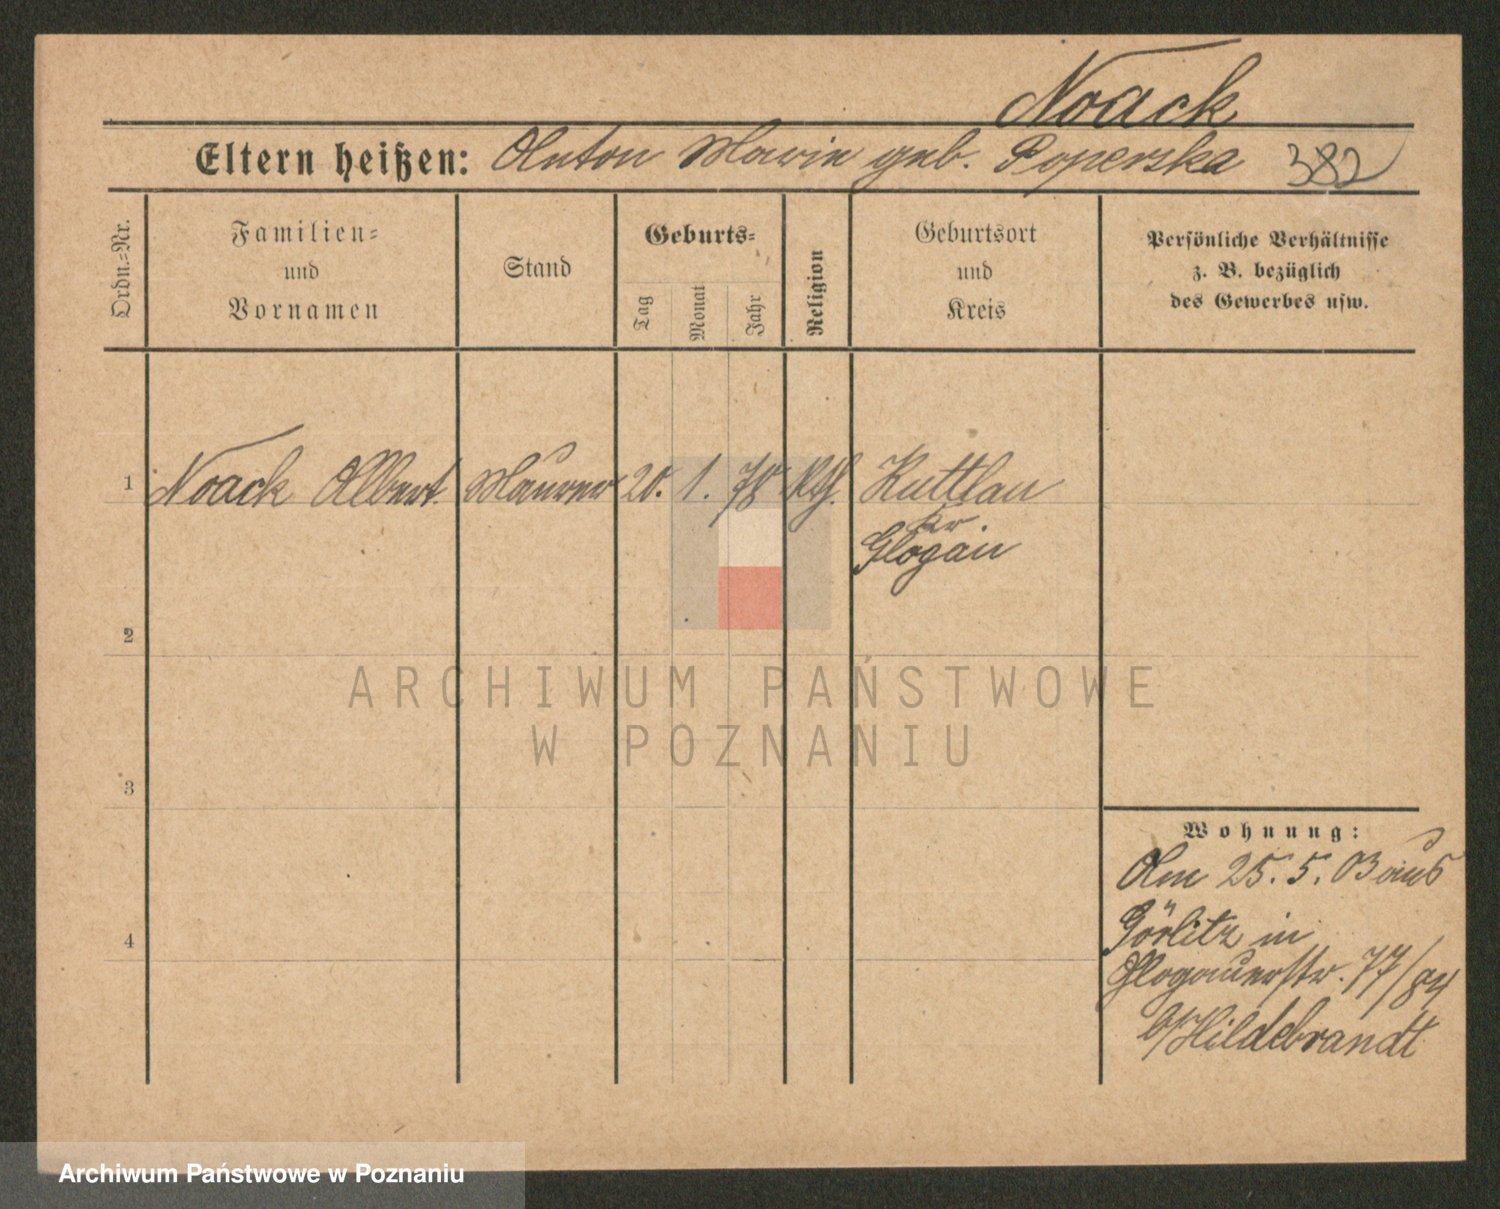 Noack
Eltern heißen: Anton Marie geb. Poperska 382
Ordn.-Nr.
Familien-
und
Vornamen
Stand
Geburts-
Tag
Monat
Jahr
Religion
Geburtsort
und
Kreis
Persönliche Verhältnisse
z. B. bezüglich
des Gewerbes usw.
1 Noack Albert Maurer 20. 1. 78 Kth. Kuttlau
Kr
Glogau
2
3
4
Wohnung:
Am 25. 5. 03 aus
Görlitz in
Glogauerstr. 77/84
b/Hildebrandt
ARCHIWUM PAŃSTWOWE
W POZNANIU
Archiwum Państwowe w Poznaniu